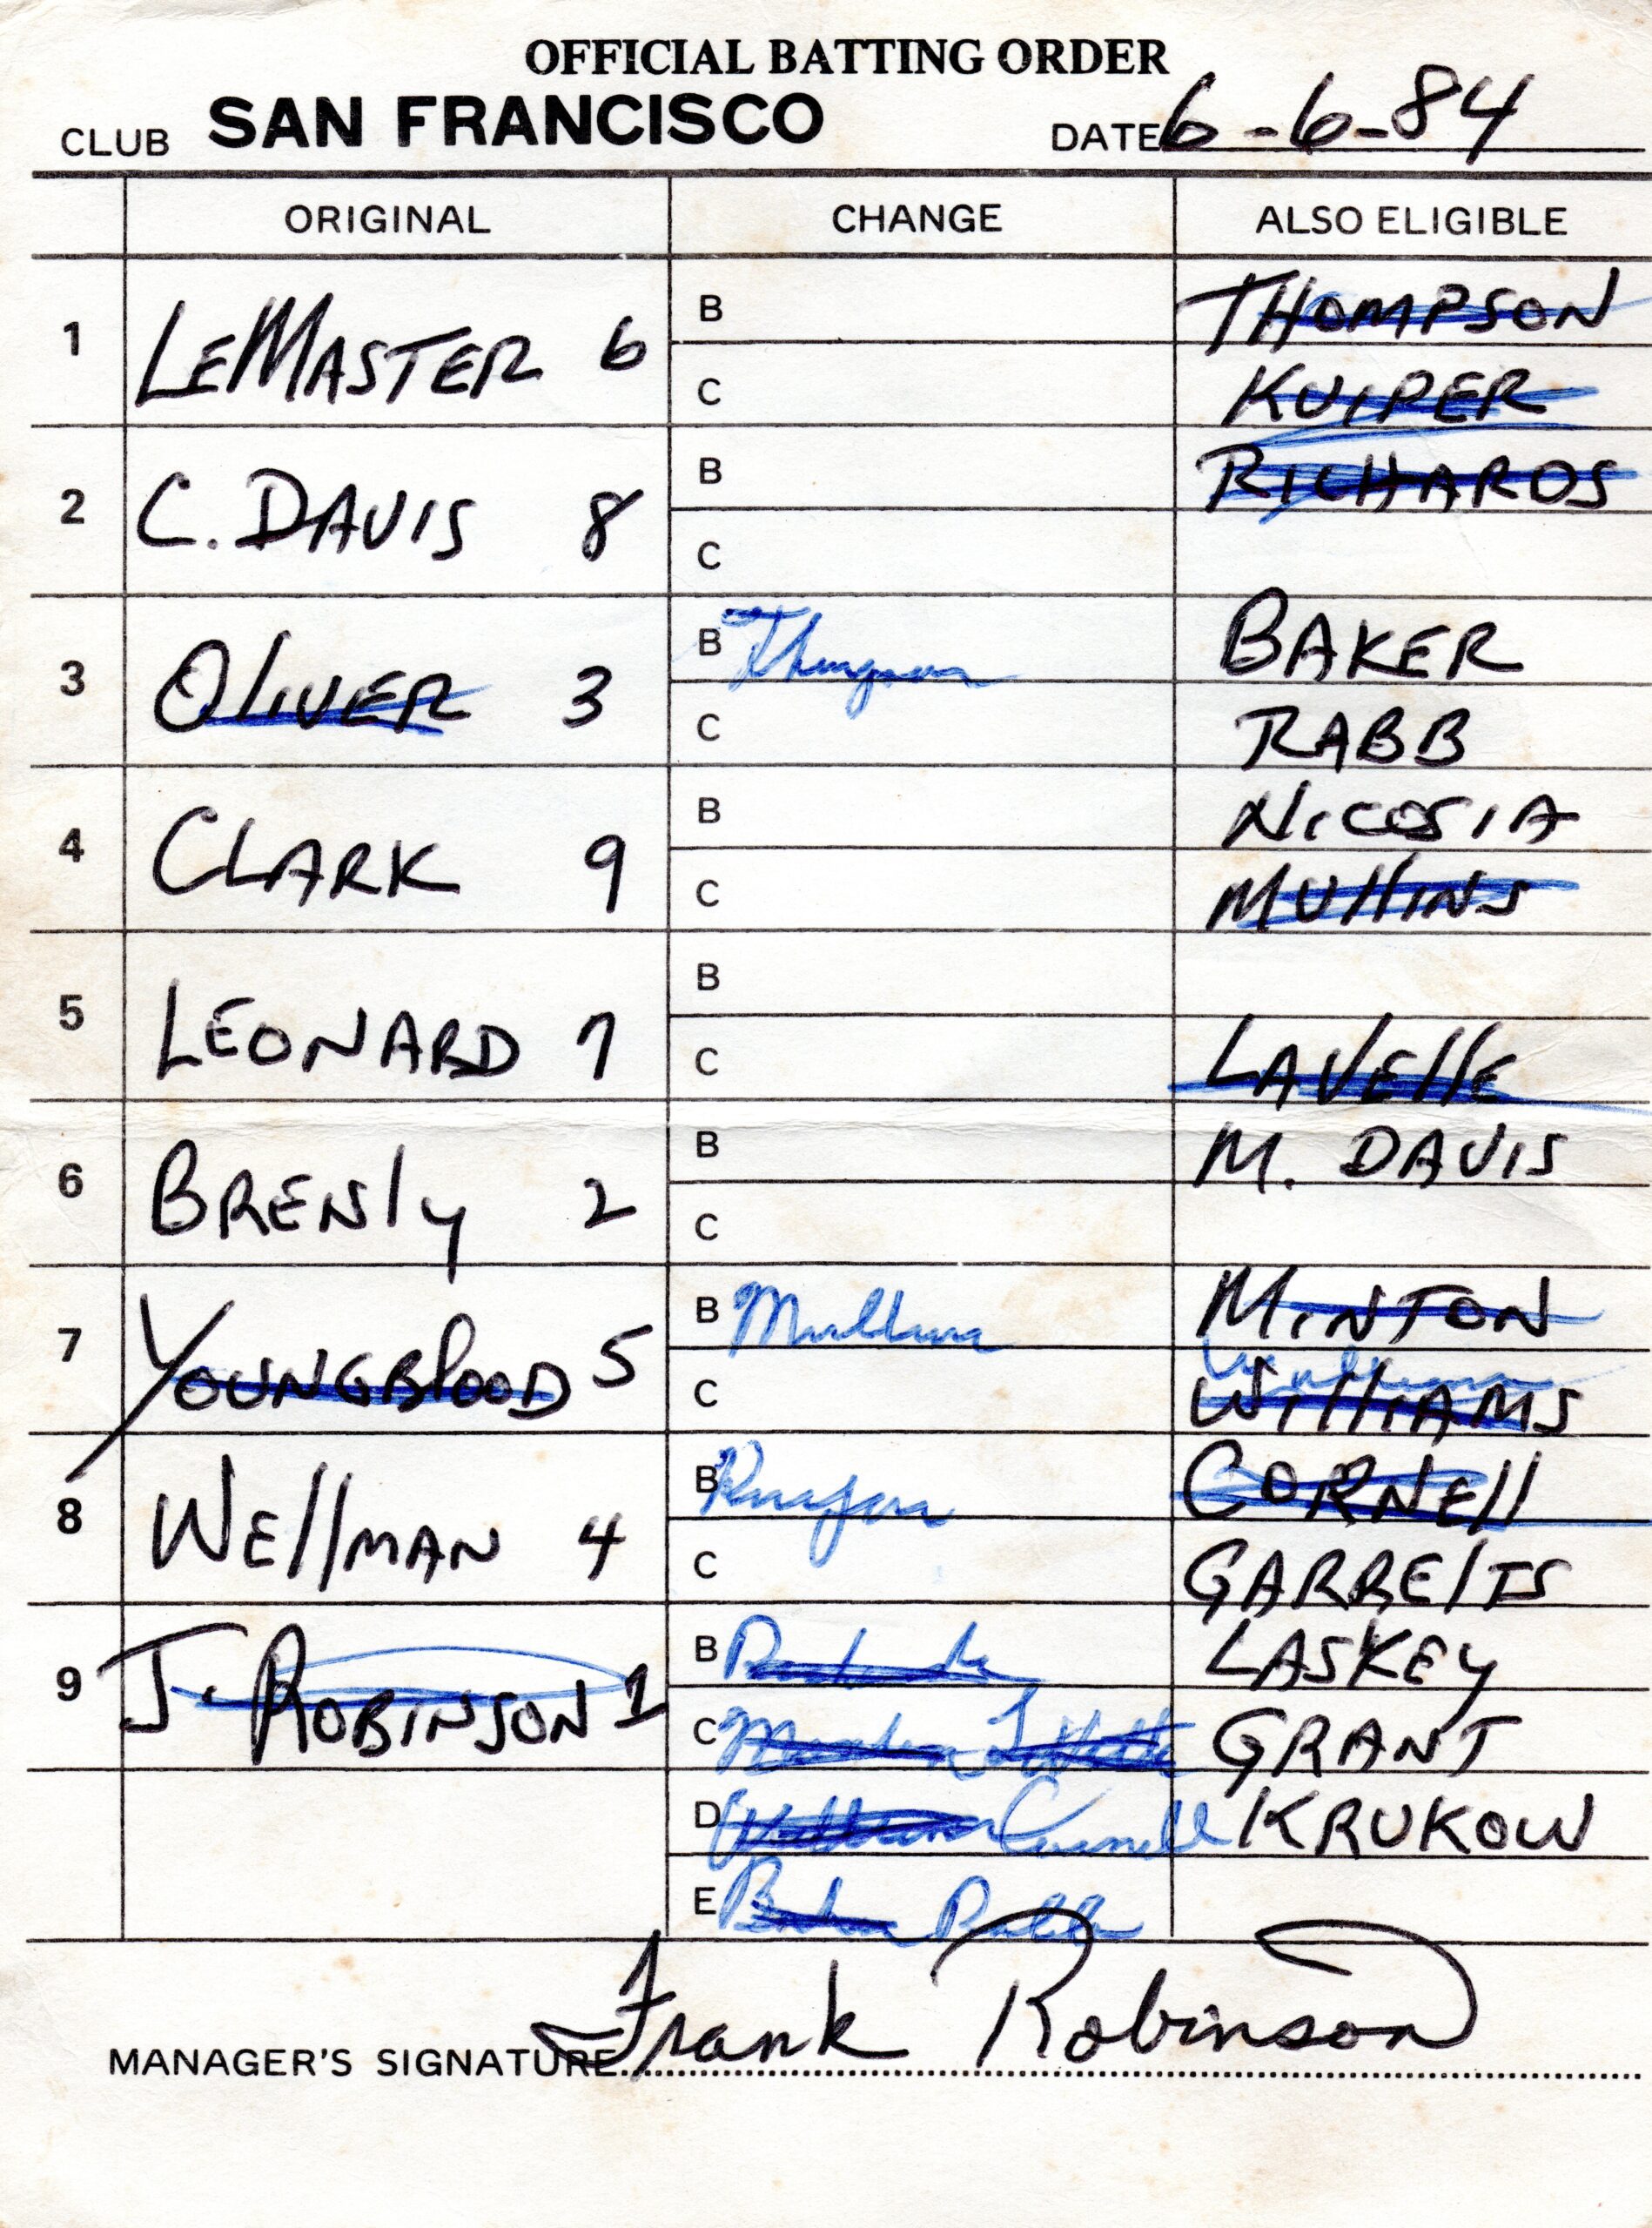 OFFICIAL BATTING ORDER
CLUB SAN FRANCISCO DATE 6-6-84
ORIGINAL CHANGE ALSO ELIGIBLE
1 LEMASTER 6 B THOMPSON
C KUIPER
2 C. DAVIS 8 B RICHARDS
C
3 OLIVER 3 B Thompson BAKER
C RABB
4 CLARK 9 B NICOSIA
C MULLINS
5 LEONARD 7 B
C LAVELLE
6 BRENLY 2 B M. DAVIS
C
7 YOUNGBLOOD 5 B Mullins MINTON
C WILLIAMS
8 WELLMAN 4 B CORNELL
C GARRELTS
9 J. ROBINSON 1 B Richards LASKEY
C Minton LaVelle GRANT
D Williams Cornell KRUKOW
E Baker Rabb
MANAGER'S SIGNATURE Frank Robinson